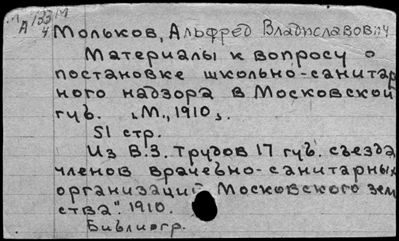 А 133/4 М
Мольков, Альфред Владиславович
Материалы к вопросу о
постановке школьно-санитар
ного надзора в Московской
губ. "М.", 1910".
51 стр.
Из В.3. Трудов 17 губ. съезда
членов врачебно-санитарных
организаций Московского зем
ства". 1910.
Библиогр.